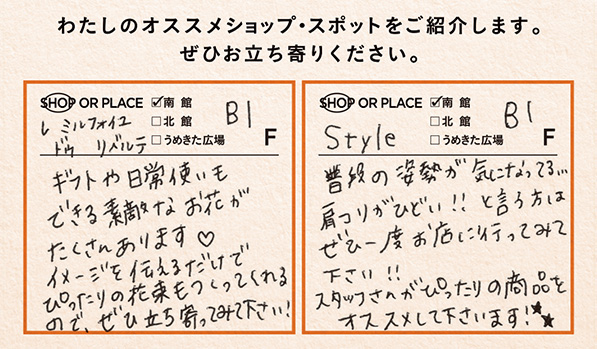 わたしのオススメショップ・スポットをご紹介します。
ぜひお立ち寄りください。
SHOP OR PLACE
☑南 館
□北 館
□うめきた広場
B1
F
レ ミルフォイユ
ドゥ リベルテ
ギフトや日常使いも
できる素敵なお花が
たくさんあります♡
イメージを伝えるだけで
ぴったりの花束もつくってくれる
ので、ぜひ立ち寄ってみて下さい!
SHOP OR PLACE
☑南 館
□北 館
□うめきた広場
B1
F
Style
普段の姿勢が気になってる…
肩コリがひどい!!と言う方は
ぜひ一度お店に行ってみて
下さい!!
スタッフさんがぴったりの商品を
オススメして下さいます!★★